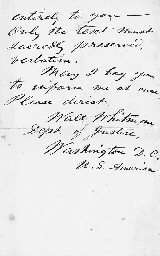 entirely to you —
Only the text must
sacredly preserved,
verbatim.
May I beg you
to inform me at once
Please direct
Walt Whitman
Dept. of Justice,
Washington D.C.
U. S. America